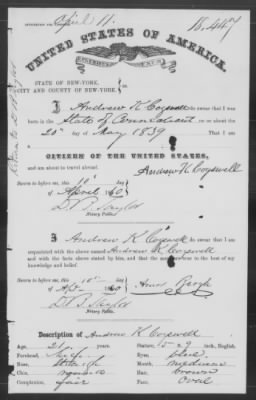 April 11.
18,447
UNITED STATES OF AMERICA.
STATE OF NEW-YORK,
CITY AND COUNTY OF NEW-YORK, } ss.
I Andrew K Cogswell do swear that I was
born in the State of Connecticut on or about the
20th of May 1839 That I am a
CITIZEN OF THE UNITED STATES,
and am about to travel abroad.
Andrew K Cogswell
Sworn to before me, this 10th day
of April 1860
D. B. Taylor
Notary Public.
I, Andrew K Cogswell do swear that I am
acquainted with the above named Andrew K Cogswell
and with the facts above stated by him, and that the same are true to the best of my
knowledge and belief.
Sworn to before me, this 10th day
of Apl 1860
D. B. Taylor
Notary Public.
Description of Andrew K Cogswell
Age, years.
Stature, 5 - 9 inch, English.
Forehead, high
Eyes, blue
Nose,
Mouth, medium
Chin, round
Hair, brown
Complexion, fair
Face, Oval